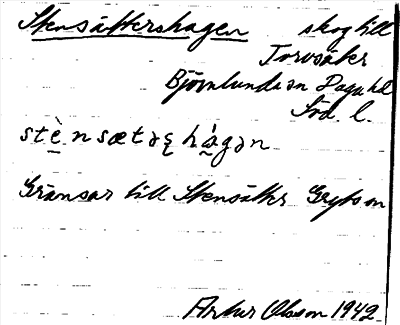 Stensättershagen skog till
Torvsäter
Björnlunda sn Daga hd
Söd. l.
stè̱nsætəʂhá̱gən
Gränsar till Stensätter Gryts sn
Artur Olsson 1942